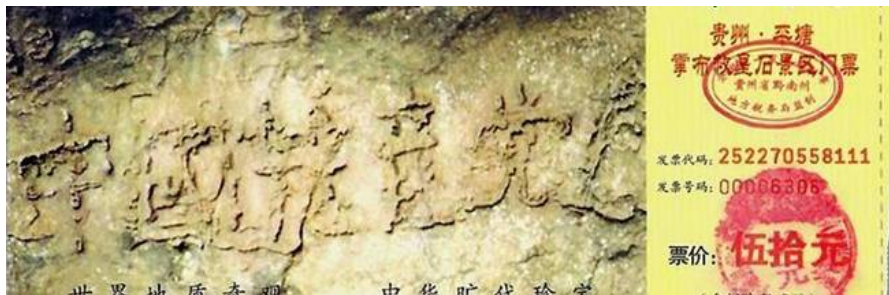 中國共产党亡
世界地质奇观 中华旷代珍宝
贵州·平塘
掌布救星石景区门票
贵州省黔南州
地方税务局监制
发票代码：252270558111
发票号码：00006306
票价：伍拾元